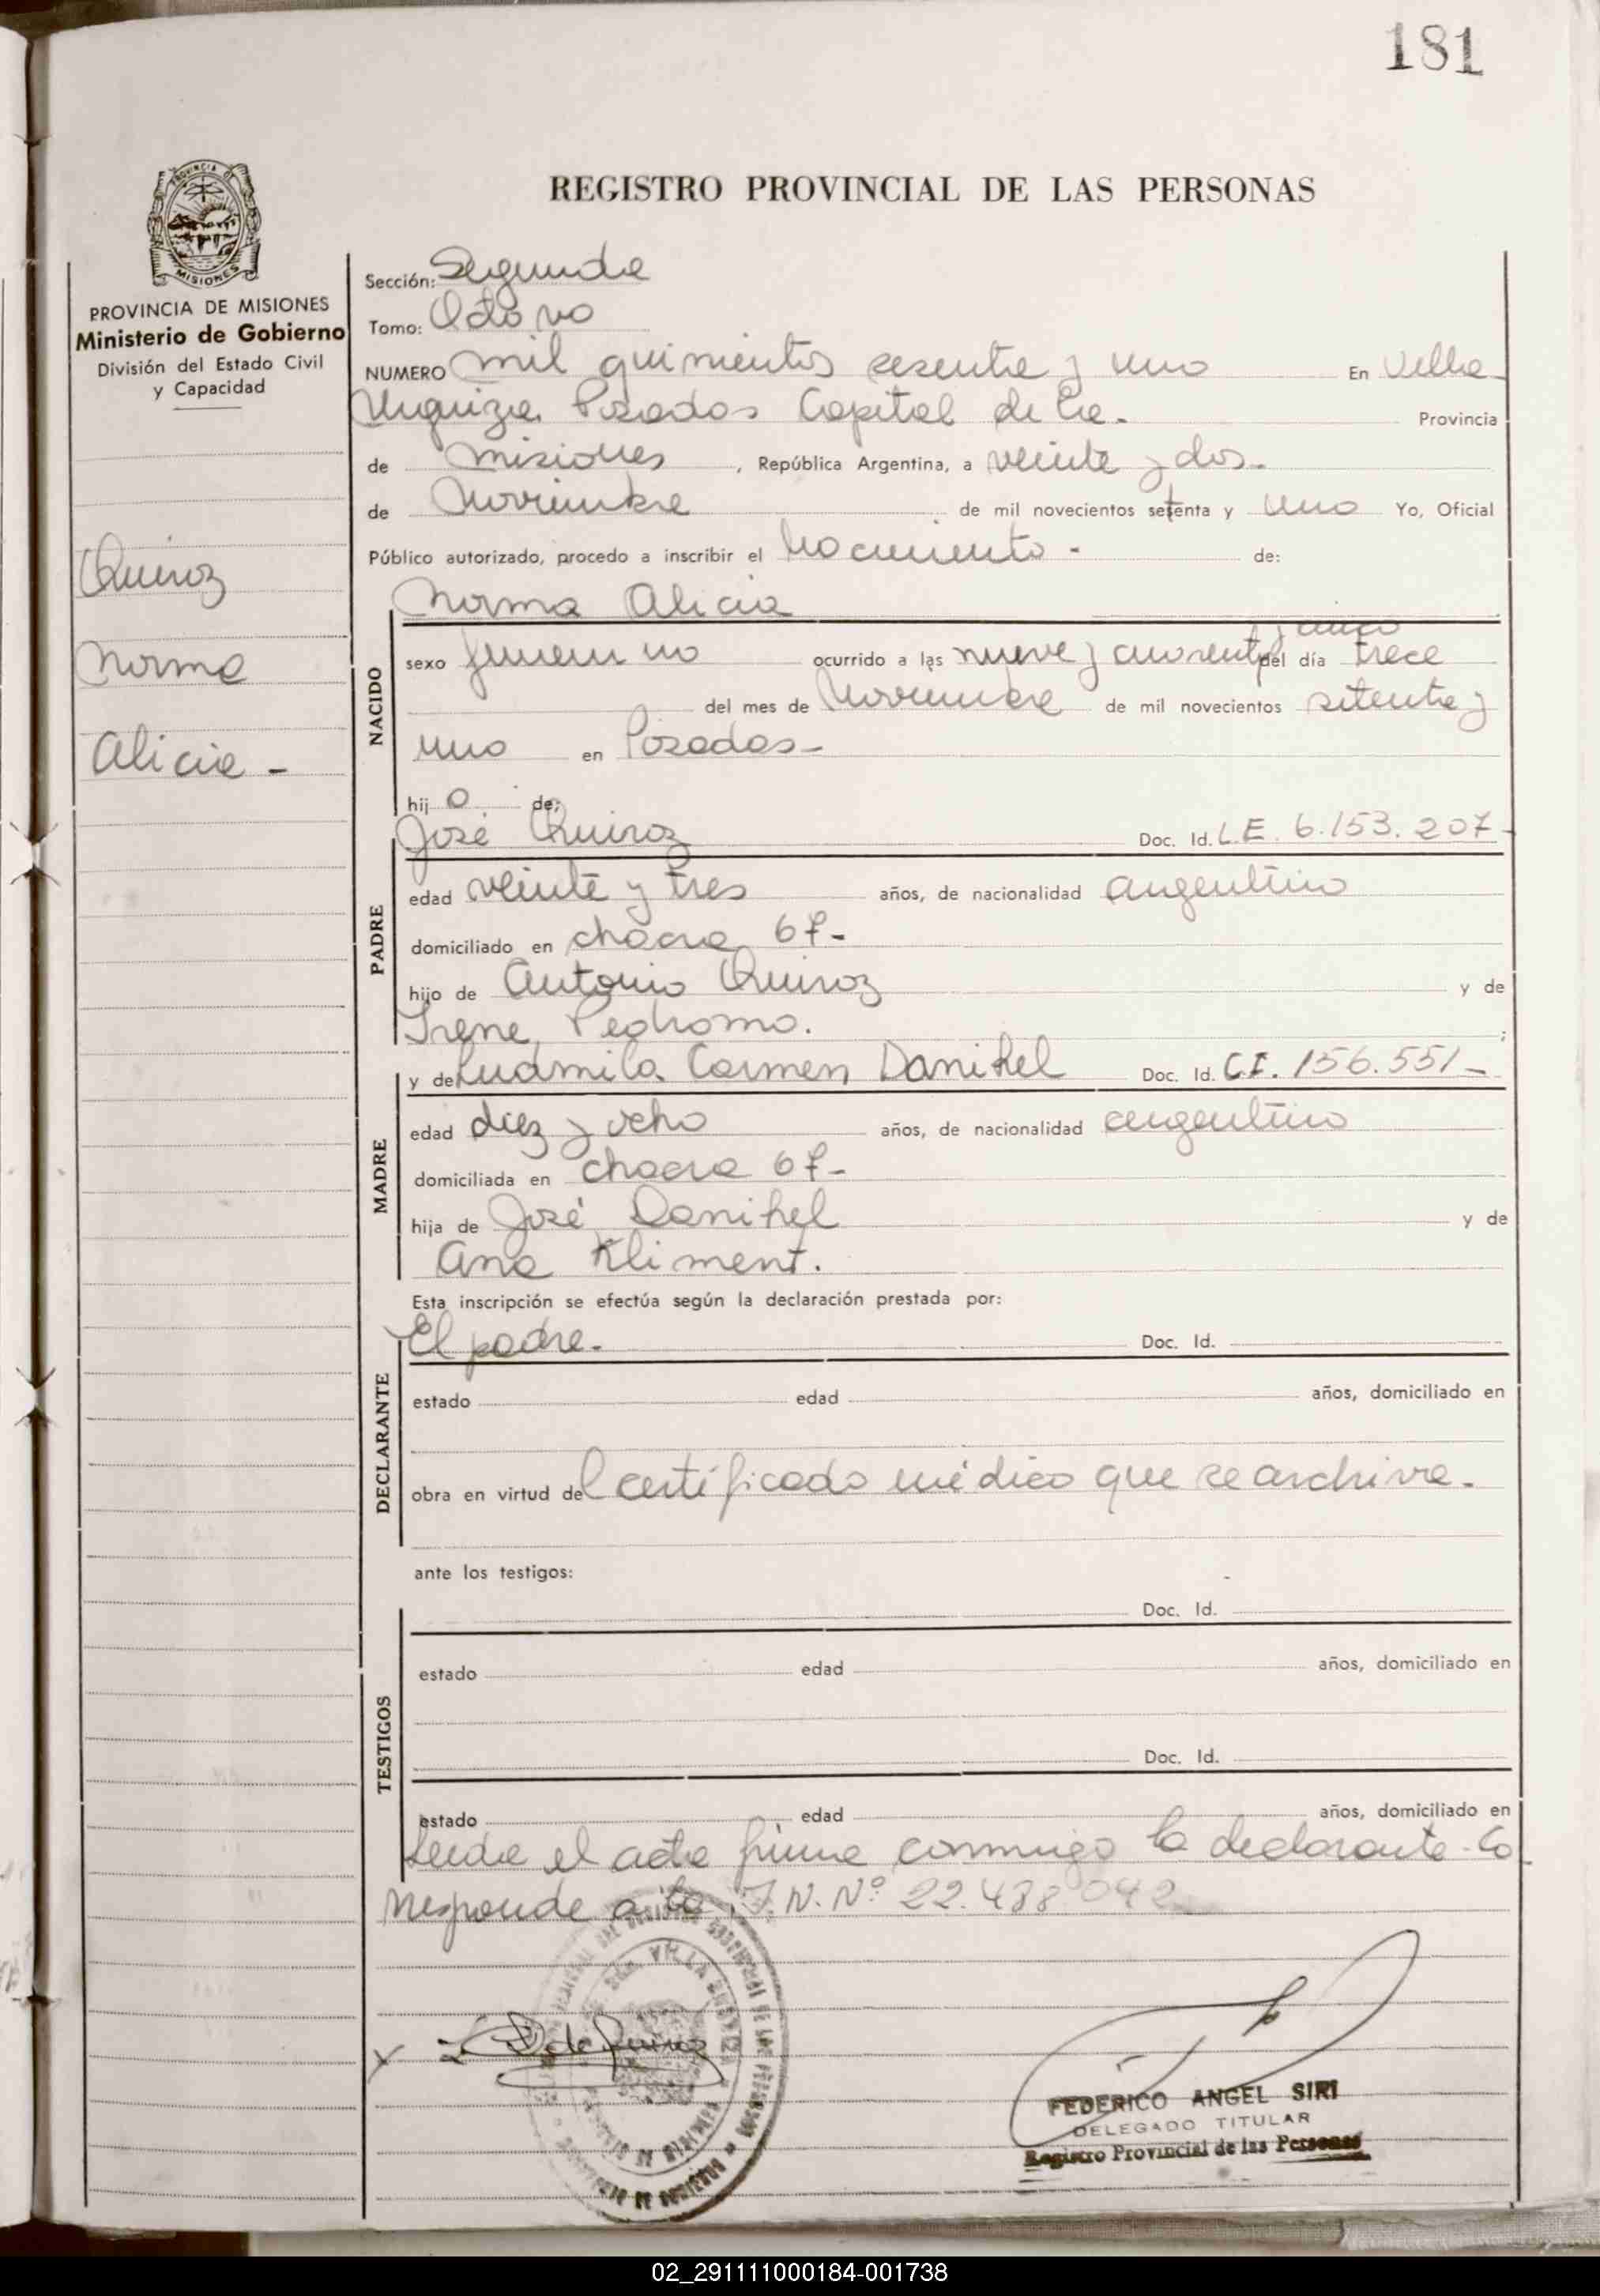 181
REGISTRO PROVINCIAL DE LAS PERSONAS
PROVINCIA DE
MISIONES
PROVINCIA DE MISIONES
Ministerio de Gobierno
División del Estado Civil
y Capacidad
Quiroz
Norma
Alicia -
Sección: Segunda
Tomo: Octavo
NUMERO mil quinientos sesenta y uno En Villa
Urquiza Posadas Capital de la - Provincia
de misiones, República Argentina, a veinte y dos -
de Noviembre de mil novecientos setenta y uno Yo, Oficial
Público autorizado, procedo a inscribir el Nacimiento - de:
Norma Alicia
NACIDO
y cinco
sexo femenino ocurrido a las nueve y cuarenta del día trece
del mes de Noviembre de mil novecientos setenta y
uno en Posadas -
hij o de:
José Quiroz Doc. Id. L.E. 6.153.207 -
PADRE
edad veinte y tres años, de nacionalidad argentino
domiciliado en chacra 67 -
hijo de Antonio Quiroz y de
Irene Pedromo. ;
y de Ludmila Carmen Danihel Doc. Id. C.I. 156.551 -
MADRE
edad diez y ocho años, de nacionalidad argentino
domiciliada en chacra 67 -
hija de José Danihel y de
Ana Kliment.
Esta inscripción se efectúa según la declaración prestada por:
El padre. Doc. Id.
DECLARANTE
estado edad años, domiciliado en
obra en virtud del certificado médico que se archiva.
ante los testigos:
Doc. Id.
TESTIGOS
estado edad años, domiciliado en
Doc. Id.
estado edad años, domiciliado en
Leida el acta firma conmigo la declarante - Co
rresponde a la I.N. Nº 22.488.042
X
FEDERICO ANGEL SIRI
DELEGADO TITULAR
Registro Provincial de las Personas
02_291111000184-001738